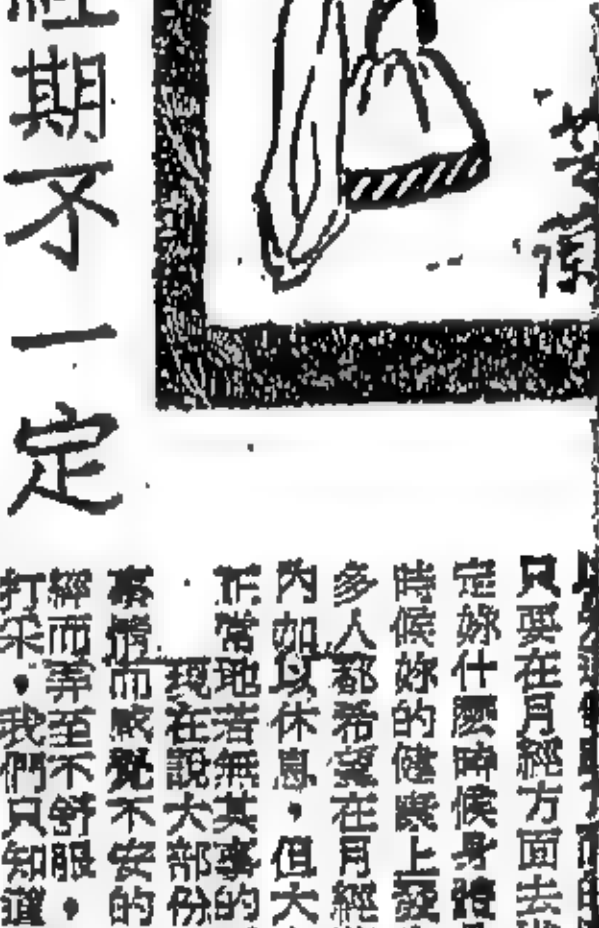 期不一定
只要在月經方面去
定妳什麼時候身體
時候妳的健康上發
多人都希望在月經
內加以休息，但大
作常地若無其事的
現在說大部份
事情而感覺不安的
經而弄至不舒服，
打采，我們只知道